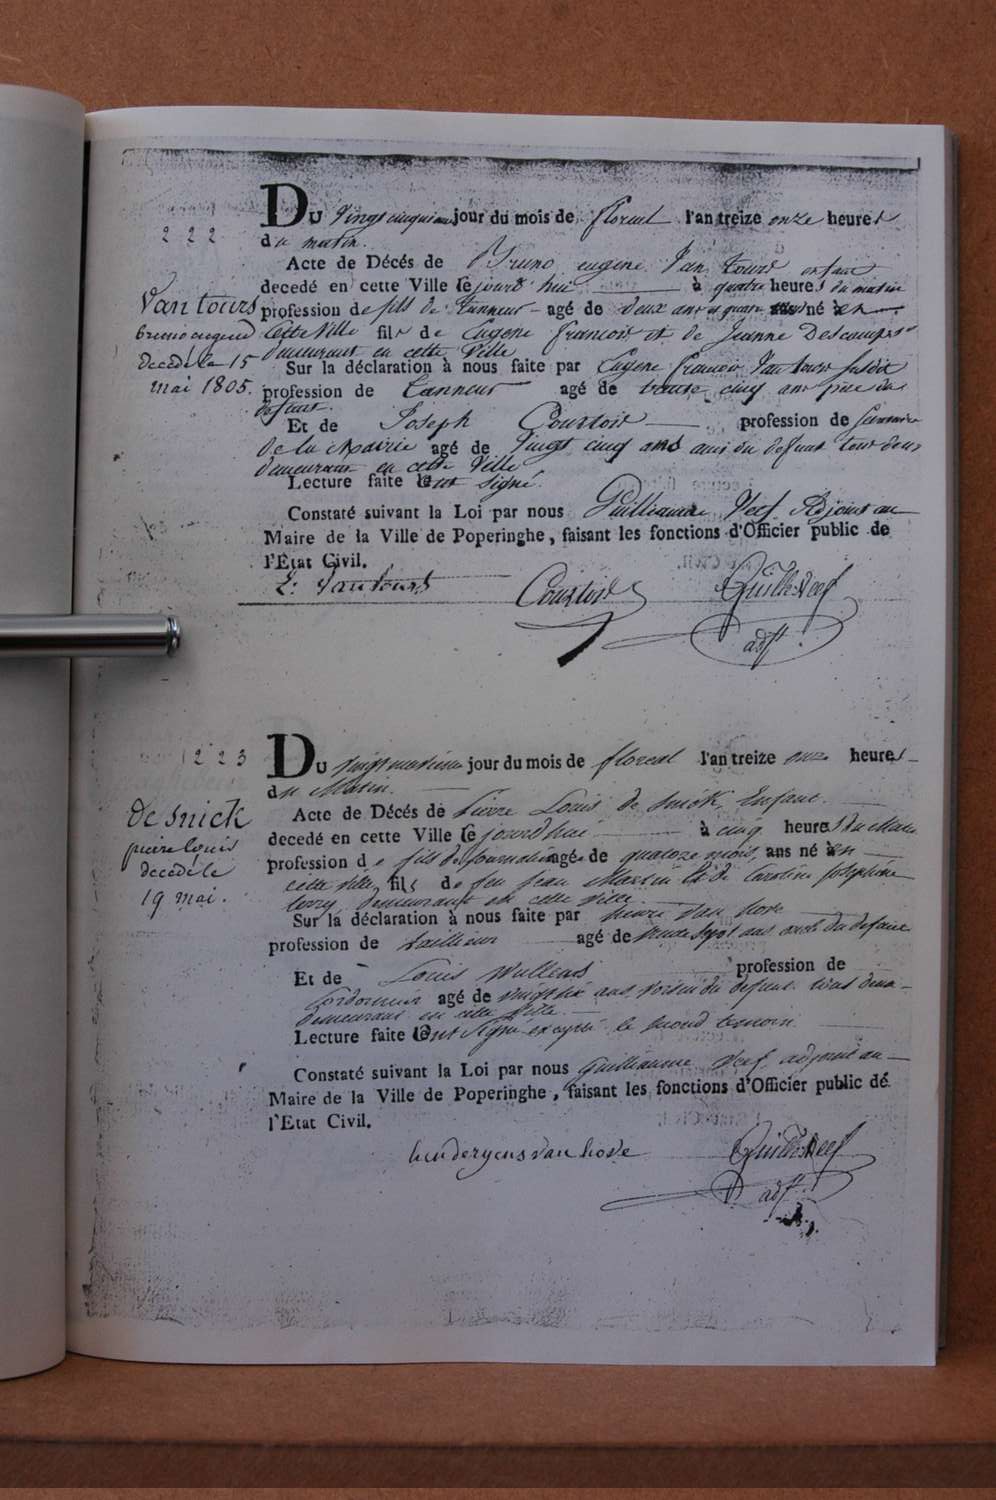 222
Du Vingt cinquieme jour du mois de floreal l'an treize onze heures
du matin.
Acte de Décés de Bruno eugene Van tours enfant
decedé en cette Ville le jourd'hui à quatre heures du matin
Van tours
profession de fils de tanneur agé de deux ans et quatre né en
bruno eugene
cette ville fils de Eugene francois et de Jeanne Descamps
demeurant en cette Ville
decedé le 15
Sur la déclaration à nous faite par Eugene francois Van tours susdit
mai 1805.
profession de tanneur agé de trente cinq ans pere du
defunt.
Et de Joseph Courtois profession de
de la Mairie agé de Vingt cinq ans ami du defunt tous deux
demeurant en cette Ville
Lecture faite ont signé.
Constaté suivant la Loi par nous Guilliaume Neef Adjoint au
Maire de la Ville de Poperinghe, faisant les fonctions d'Officier public de
l'Etat Civil.
E. Vantours Courtois Guill: Neef
adjt.
223
Du jour du mois de floreal l'an treize onze heures
du Matin.
Acte de Décés de Pierre Louis de Snick, Enfant
de snick
decedé en cette Ville le jourd'hui à cinq heures du Matin
pierre louis
profession de fils de journalier agé de quatorze mois, ans né en
decedé le
cette ville, fils de feu Jean Martin et de Caroline Josephine
19 mai.
demeurant en cette ville.
Sur la déclaration à nous faite par van hove
profession de tailleur agé de trente sept ans, oncle du defunt
Et de Louis Wullens profession de
Cordonnier agé de vingt six ans, voisin du defunt tous deux
demeurant en cette Ville.
Lecture faite ont signé excepté le second temoin.
Constaté suivant la Loi par nous Guilliaume Neef adjoint au
Maire de la Ville de Poperinghe, faisant les fonctions d'Officier public de
l'Etat Civil.
van hove Guill: Neef
adjt.